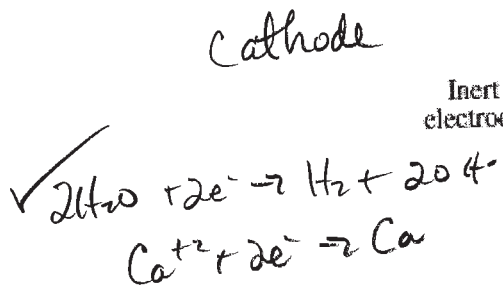 Cathode
Inert
electrod
✓ 2H₂O + 2e⁻ → H₂ + 2OH⁻
Ca⁺² + 2e⁻ → Ca